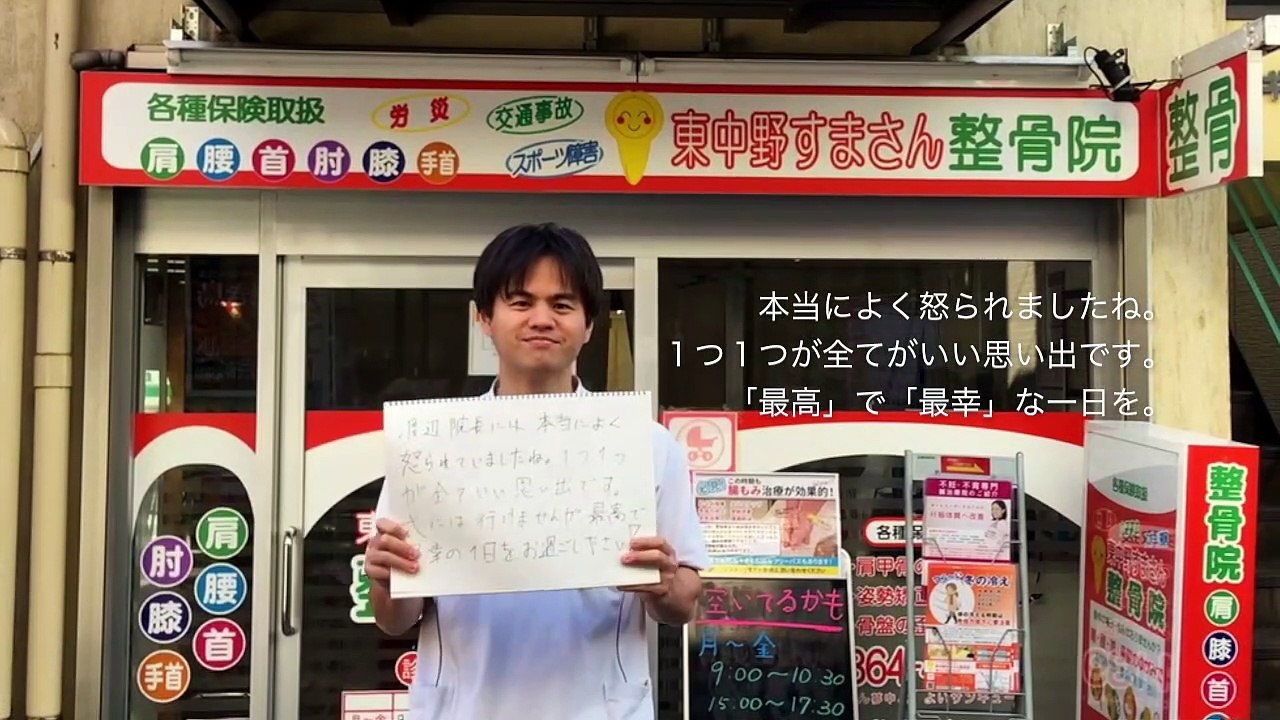 各種保険取扱
労災
交通事故
東中野すまさん整骨院
整骨
肩 腰 首 肘 膝 手首
スポーツ障害
本当によく怒られましたね。
１つ１つが全てがいい思い出です。
「最高」で「最幸」な一日を。
渡辺院長には本当によく
怒られていましたね。1つ1つ
が全ていい思い出です。
には行けませんが最高で
幸の1日をお過ごし下さい
この時期も
腸もみ治療が効果的!
空いてるかも
月～金
9:00～10:30
15:00～17:30
不妊・不育専門
妊娠体質へ改善
冬の冷え
各種保
肩甲骨の
姿勢矯正
骨盤の歪
364
肩
肘
腰
膝
首
手首
月～金
各種保険取扱
東中野すまさん
整骨院
整骨院
肩
膝
首